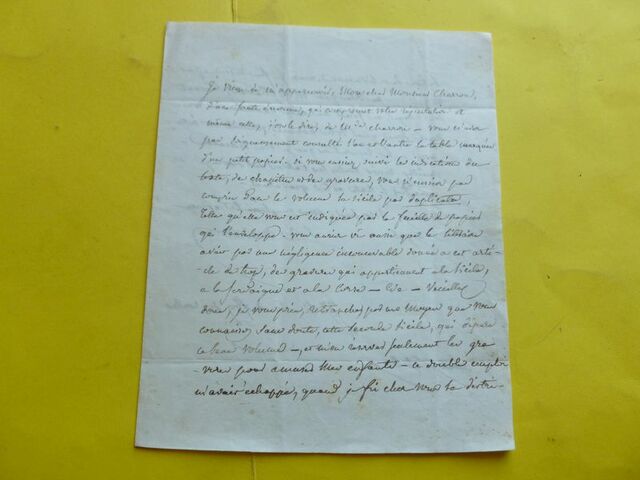 Je viens de m'appercevoir, Mon cher Monsieur Charron,
d'une faute énorme, qui compromet votre réputation et
même celle, j'ose le dire, de Mde charron — vous n'avez
pas suffisamment consulté l'une et l'autre la table marquée
d'un petit papier. si vous eussiez suivi les indications du
texte, de chapitres et de gravures, vous n'eussiez pas
compris dans le volume la Sicile par duplicata,
telle qu'elle vous est indiquée par la feuille de papier
qui l'enveloppe. vous auriez vu aussi que le libraire
avait par une négligence inconcevable donné à cet arti-
cle de trop, des gravures qui appartiennent à la Sicile,
a la Sardaigne et a la Corse — &c — Veuillez
donc, je vous prie, retrancher par un moyen que vous
connaissez sans doute, cette seconde Sicile, qui dépare
ce beau volume — et m'en réserver seulement les gra-
vures pour amuser mes enfants — ce double emploi
m'avait échappé, quand je fis chez vous la distri-